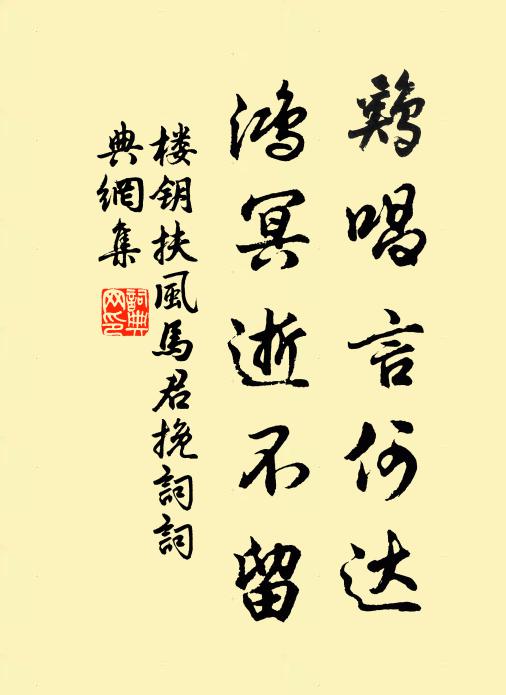 鷄唱言何达
鴻冥逝不留
楼钥扶風馬君挽詞詞
典網集
詞典網印